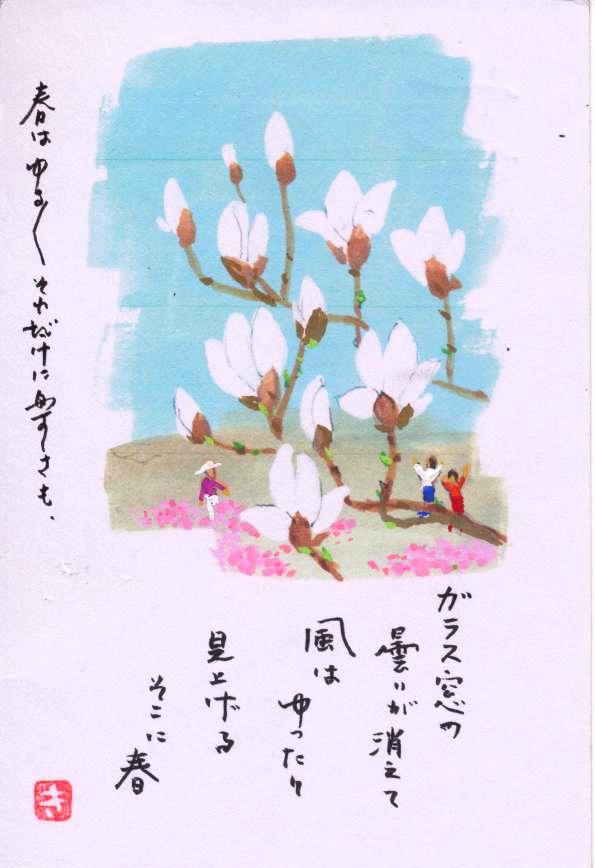 ガラス窓の
曇りが消えて
風は ゆったり
見上げる
そこに春
春は ゆるく それだけに しさも、
き